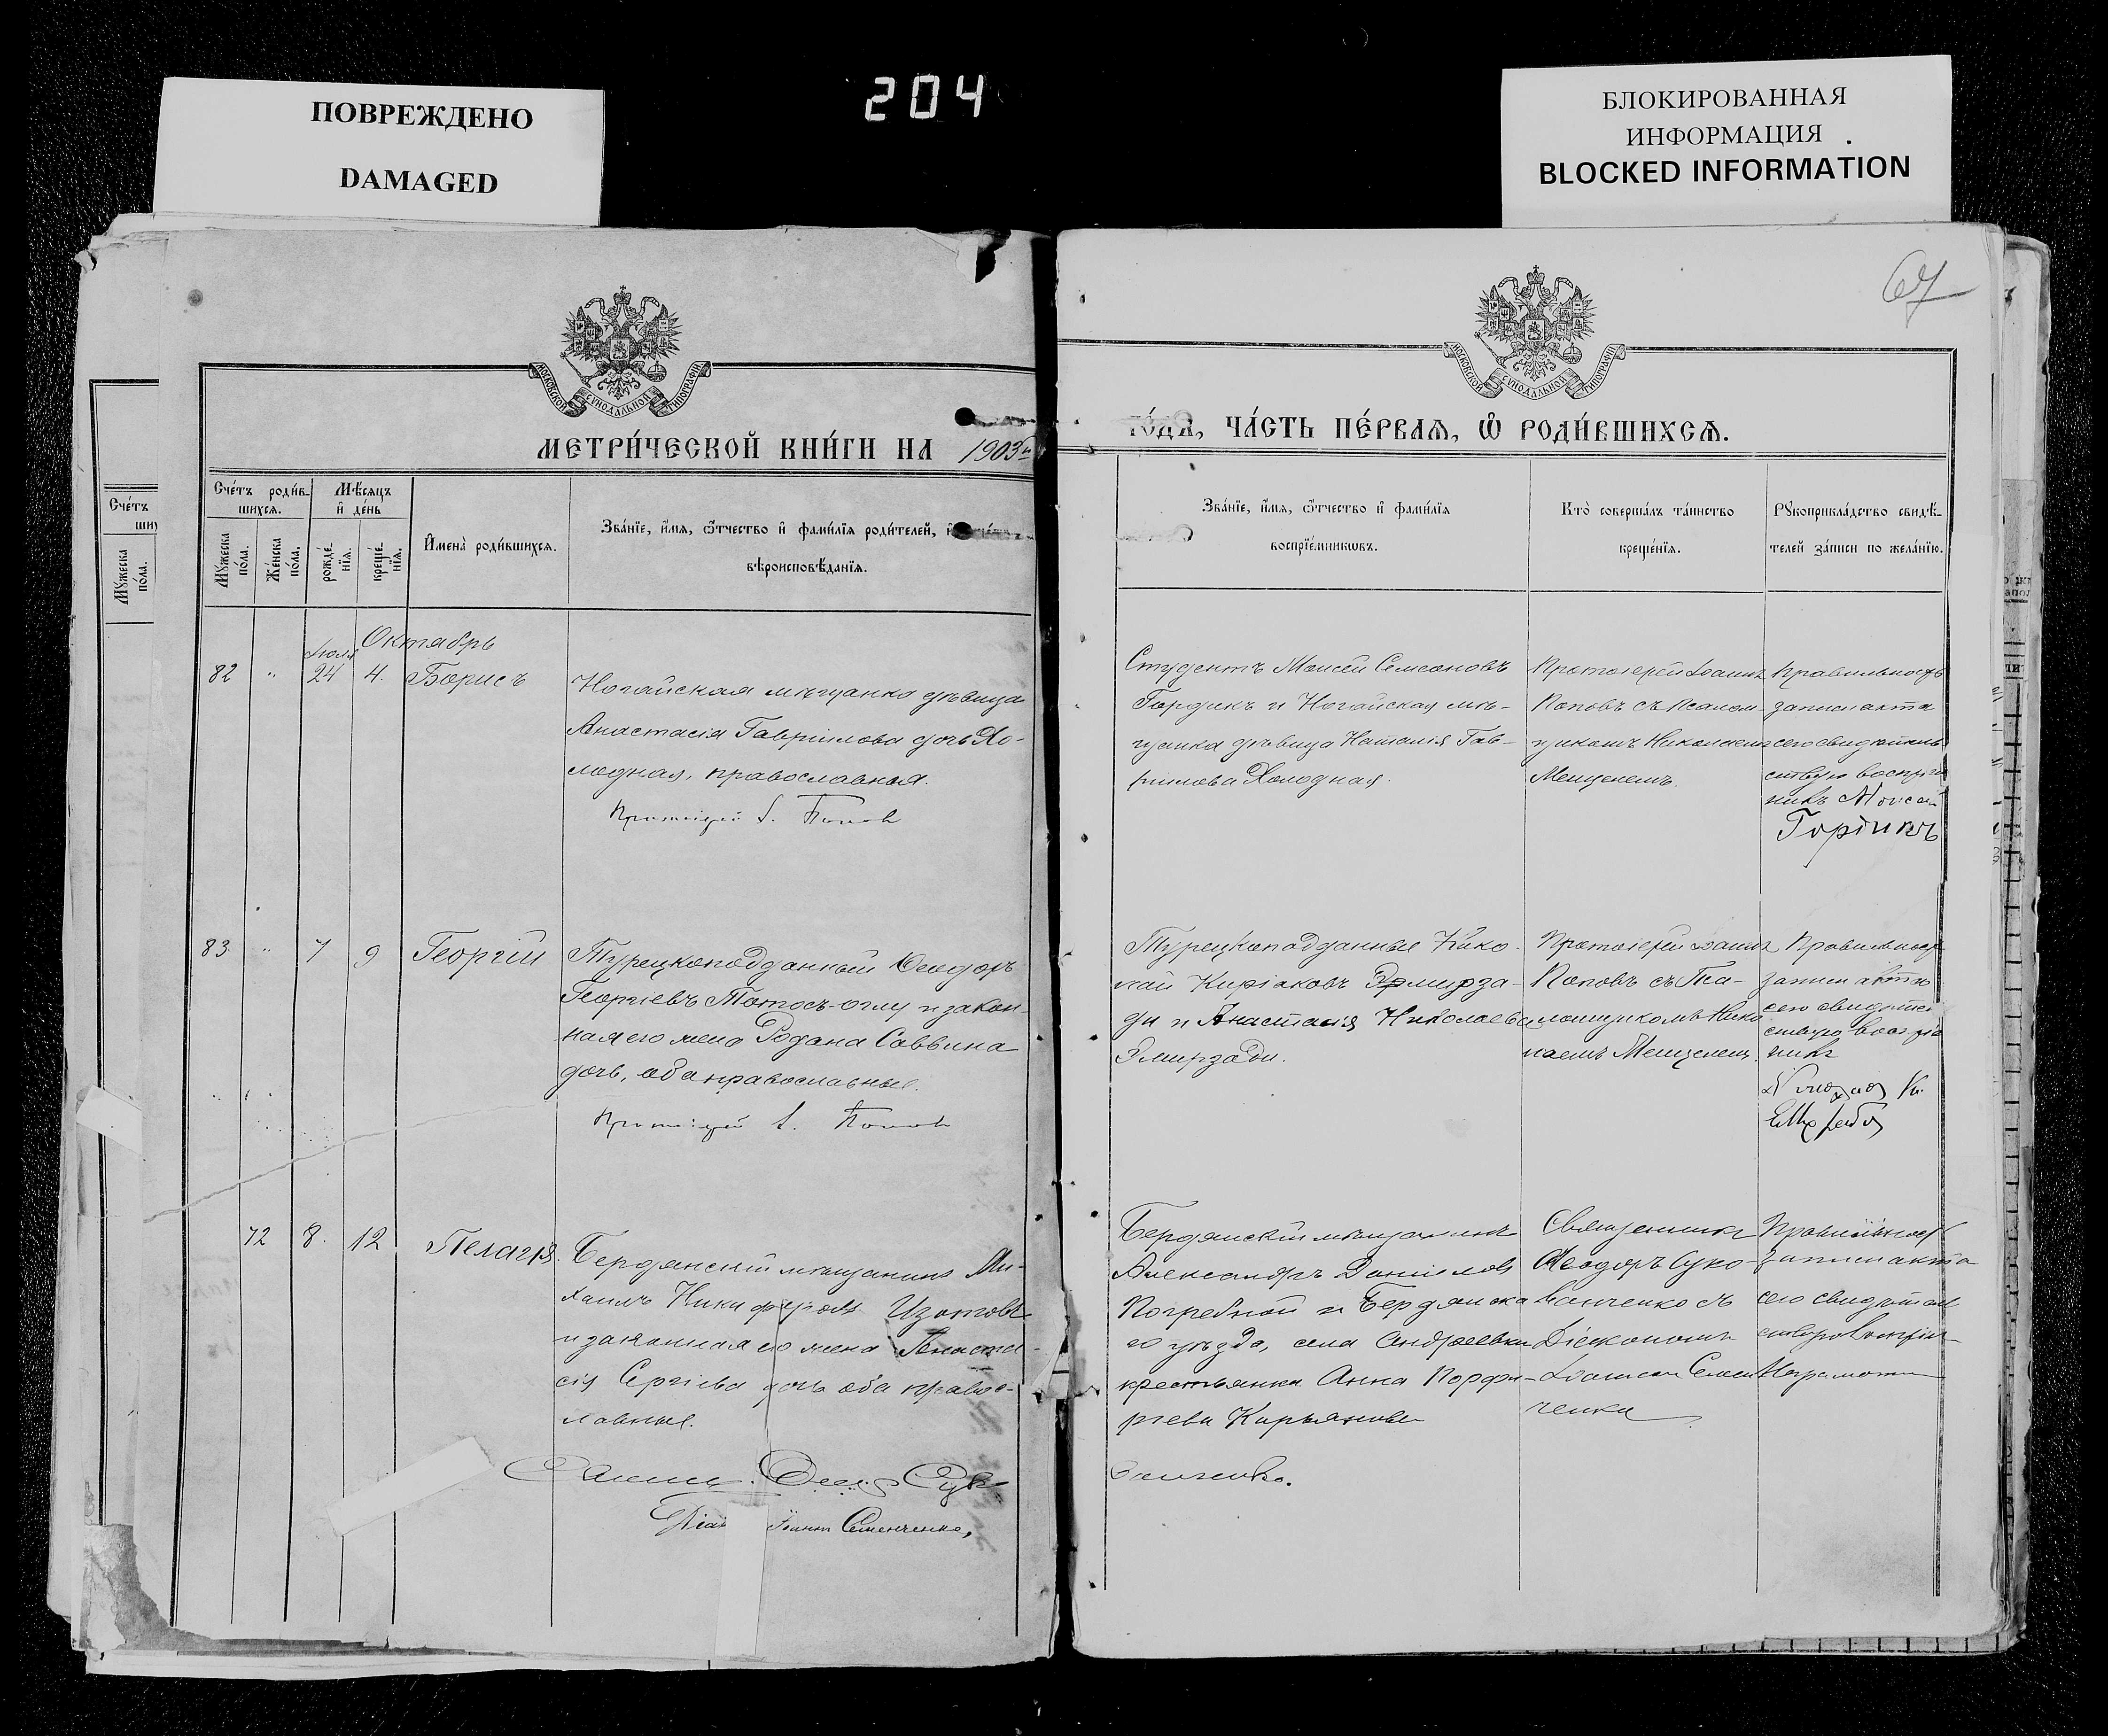 204
ПОВРЕЖДЕНО
DAMAGED
БЛОКИРОВАННАЯ
ИНФОРМАЦИЯ
BLOCKED INFORMATION
67
МОСКОВСКОЙ СУНОДАЛЬНОЙ ТИПОГРАФІИ
МОСКОВСКОЙ СУНОДАЛЬНОЙ ТИПОГРАФІИ
МЕТРИ́ЧЕСКОЙ КНИ́ГИ НА 1903
го́да, ЧА́СТЬ ПЕ́РВАѦ, Ѡ РОДИ́ВШИХСѦ.
Сче́тъ
Мꙋ́жеска по́ла.
Сче́тъ роди́в-
шихсѧ.
Мꙋ́жеска по́ла.
Же́нска по́ла.
Мѣ́сѧцъ
и҆ де́нь
рожде́-нїѧ.
креще́-нїѧ.
И҆мена̀ роди́вшихсѧ.
Зва́нїе, и҆́мѧ, ѻ҆́тчество и҆ фами́лїѧ роди́телей,
вѣроисповѣ́данїѧ.
Зва́нїе, и҆́мѧ, ѻ҆́тчество и҆ фами́лїѧ
воспрїе́мникѡвъ.
Кто̀ соверша́лъ та́инство
креще́нїѧ.
Рꙋкоприкла́дство свидѣ́-
телей за́писи по жела́нїю.
Октябрь
Іюля
82 " 24 4. Борисъ
Ногайская мѣщанка дѣвица
Анастасія Гавріилова дочь Хо-
лодная, православная.
Протоіерей І. Поповъ
Студентъ Моисей Семеоновъ
Гордикъ и Ногайская мѣ-
щанка дѣвица Наталія Гав-
ріилова Холодная.
Протоіерей Іоаннъ
Поповъ съ Псалом-
щикомъ Николаемъ
Мещенемъ.
Правильность
записи акта
сего свидѣтель
ствую воспріем
никъ Моисей
Гордикъ
83 " 7 9 Георгій
Турецкоподданный Ѳеодоръ
Георгіевъ Тотосъ-оглу и закон-
ная его жена Родана Саввина
дочь, оба православные.
Протоіерей І. Поповъ
Турецкоподданные Нико-
лай Киріаковъ Элмирза-
ди и Анастасія Николаева
Элмирзади.
Протоіерей Іоаннъ
Поповъ съ Пса-
ломщикомъ Нико
лаемъ Мещенем.
Правильность
записи акта
сего свидѣтель
ствую воспріем
никъ
72 8. 12 Пелагія.
Бердянскій мѣщанинъ Ми-
хаилъ Никифоровъ Изотовъ
и законная его жена Анаста-
сія Сергіева дочь оба правос-
лавные.
Іоаннъ Семенченко,
Бердянскій мѣщанинъ
Александръ Даніиловъ
Погребной и Бердянска
го уѣзда, села Андреевки
крестьянка Анна Порфи-
ріева Карьянова
Священникъ
Ѳеодоръ Суко-
ванченко съ
Діакономъ
Іоанномъ Семен
ченко
Правильность
записи акта
сего свидѣтель
ствую воспріем
Неграмотн
ванченко.